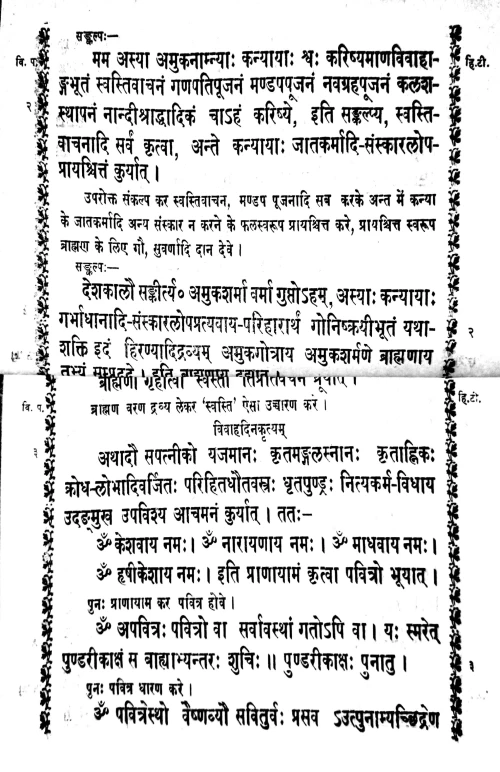 सङ्कल्पः—
वि. प.
हि. टी.
मम अस्या अमुकनाम्न्याः कन्यायाः श्वः करिष्यमाणविवाहा-
ङ्गभूतं स्वस्तिवाचनं गणपतिपूजनं मण्डपपूजनं नवग्रहपूजनं कलश-
२
स्थापनं नान्दीश्राद्धादिकं चाऽहं करिष्ये, इति सङ्कल्प्य, स्वस्ति-
वाचनादि सर्वं कृत्वा, अन्ते कन्यायाः जातकर्मादि-संस्कारलोप-
प्रायश्चित्तं कुर्यात् ।
उपरोक्त संकल्प कर स्वस्तिवाचन, मण्डप पूजनादि सब करके अन्त में कन्या
के जातकर्मादि अन्य संस्कार न करने के फलस्वरूप प्रायश्चित्त करे, प्रायश्चित्त स्वरूप
ब्राह्मण के लिए गौ, सुवर्णादि दान देवे ।
सङ्कल्पः—
देशकालौ सङ्कीर्त्य० अमुकशर्मा वर्मा गुप्तोऽहम्, अस्याः कन्यायाः
गर्भाधानादि-संस्कारलोपप्रत्यवाय-परिहारार्थं गोनिष्कयीभूतं यथा-
२
शक्ति इदं हिरण्यादिद्रव्यम् अमुकगोत्राय अमुकशर्मणे ब्राह्मणाय
तुभ्यं
ब्राह्मणो गृहीत्वा
वि. प.
हि. टी.
ब्राह्मण वरण द्रव्य लेकर 'स्वस्ति' ऐसा उच्चारण करे ।
विवाहदिनकृत्यम्
३
अथादौ सपत्नीको यजमानः कृतमङ्गलस्नानः कृताह्निकः
क्रोध-लोभादिवर्जितः परिहितधौतवस्त्रः धृतपुण्ड्रः नित्यकर्म-विधाय
उदङ्मुख उपविश्य आचमनं कुर्यात् । ततः–
ॐ केशवाय नमः। ॐ नारायणाय नमः । ॐ माधवाय नमः।
ॐ हृषीकेशाय नमः। इति प्राणायामं कृत्वा पवित्रो भूयात् ।
पुनः प्राणायाम कर पवित्र होवे ।
ॐ अपवित्रः पवित्रो वा सर्वावस्थां गतोऽपि वा । यः स्मरेत्
पुण्डरीकाक्षं स बाह्याभ्यन्तरः शुचिः ॥ पुण्डरीकाक्षः पुनातु ।
३
पुनः पवित्र धारण करे ।
ॐ पवित्रेस्थो वैष्णव्यौ सवितुर्वः प्रसव ऽउत्पुनाम्यच्छिद्रेण